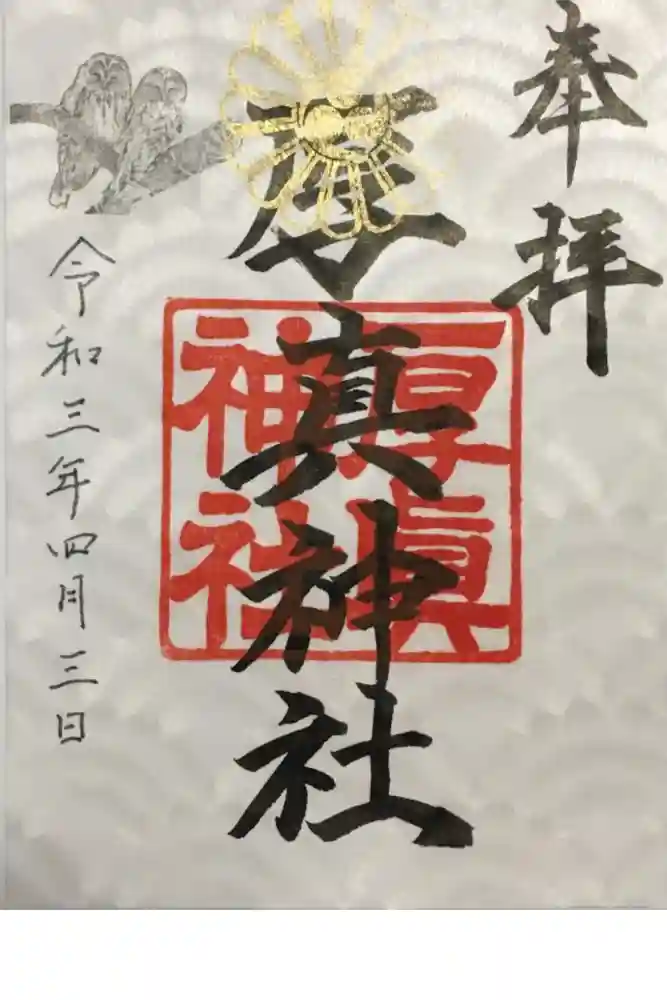 奉拝
厚真神社
厚真
神社
令和三年四月三日